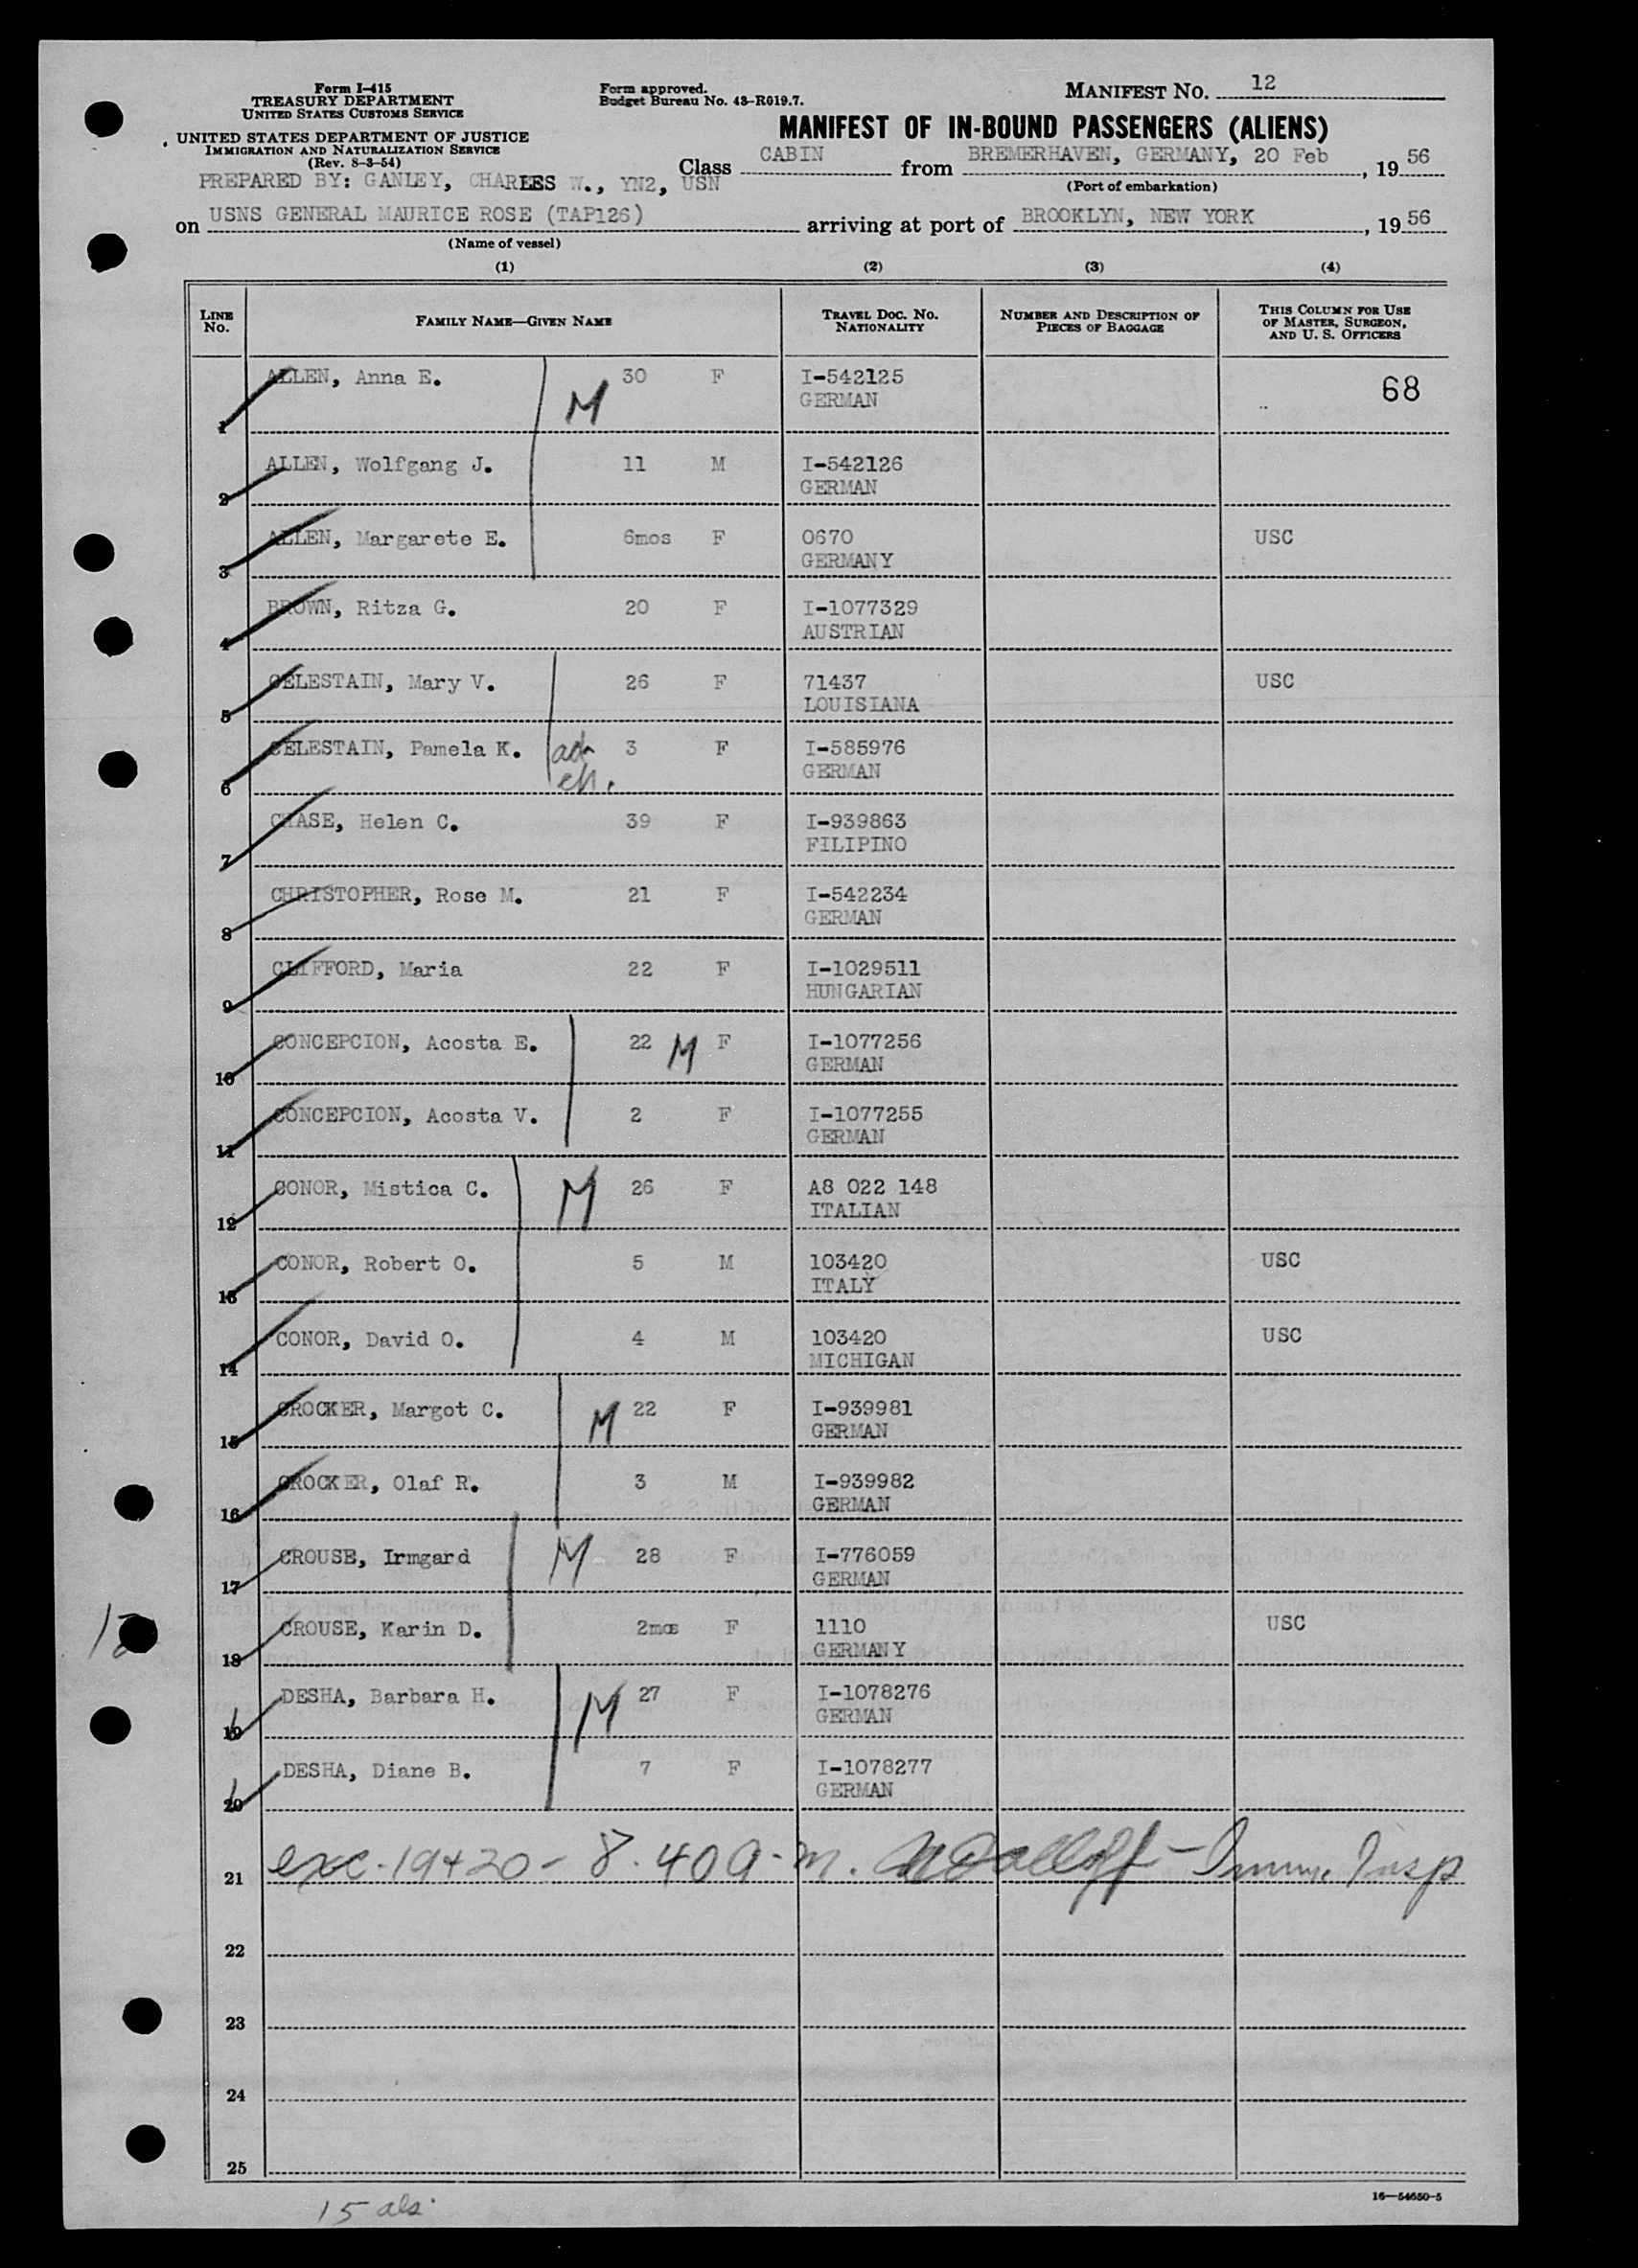 Form I-415
TREASURY DEPARTMENT
UNITED STATES CUSTOMS SERVICE
UNITED STATES DEPARTMENT OF JUSTICE
IMMIGRATION AND NATURALIZATION SERVICE
(Rev. 8-3-54)
PREPARED BY: GANLEY, CHARLES W., YN2, USN
Form approved.
Budget Bureau No. 43-R019.7.
MANIFEST NO. 12
MANIFEST OF IN-BOUND PASSENGERS (ALIENS)
Class CABIN from BREMERHAVEN, GERMANY, 20 Feb, 1956
(Port of embarkation)
on USNS GENERAL MAURICE ROSE (TAP126) arriving at port of BROOKLYN, NEW YORK, 1956
(Name of vessel)
(1) (2) (3) (4)
LINE No. FAMILY NAME—GIVEN NAME TRAVEL DOC. NO. NATIONALITY NUMBER AND DESCRIPTION OF PIECES OF BAGGAGE THIS COLUMN FOR USE OF MASTER, SURGEON, AND U. S. OFFICERS
1 ALLEN, Anna E. M 30 F I-542125 GERMAN 68
2 ALLEN, Wolfgang J. 11 M I-542126 GERMAN
3 ALLEN, Margarete E. 6mos F 0670 GERMANY USC
4 BROWN, Ritza G. 20 F I-1077329 AUSTRIAN
5 CELESTAIN, Mary V. 26 F 71437 LOUISIANA USC
6 CELESTAIN, Pamela K. ad. ch. 3 F I-585976 GERMAN
7 CHASE, Helen C. 39 F I-939863 FILIPINO
8 CHRISTOPHER, Rose M. 21 F I-542234 GERMAN
9 CLIFFORD, Maria 22 F I-1029511 HUNGARIAN
10 CONCEPCION, Acosta E. 22 M F I-1077256 GERMAN
11 CONCEPCION, Acosta V. 2 F I-1077255 GERMAN
12 CONOR, Mistica C. M 26 F A8 022 148 ITALIAN
13 CONOR, Robert O. 5 M 103420 ITALY USC
14 CONOR, David O. 4 M 103420 MICHIGAN USC
15 CROCKER, Margot C. M 22 F I-939981 GERMAN
16 CROCKER, Olaf R. 3 M I-939982 GERMAN
17 CROUSE, Irmgard M 28 F I-776059 GERMAN
18 CROUSE, Karin D. 2mos F 1110 GERMANY USC
19 DESHA, Barbara H. M 27 F I-1078276 GERMAN
20 DESHA, Diane B. 7 F I-1078277 GERMAN
21 exc-19+20- 8.40 a.m. - Imm. Insp
22
23
24
25
15 als.
16—54650-5